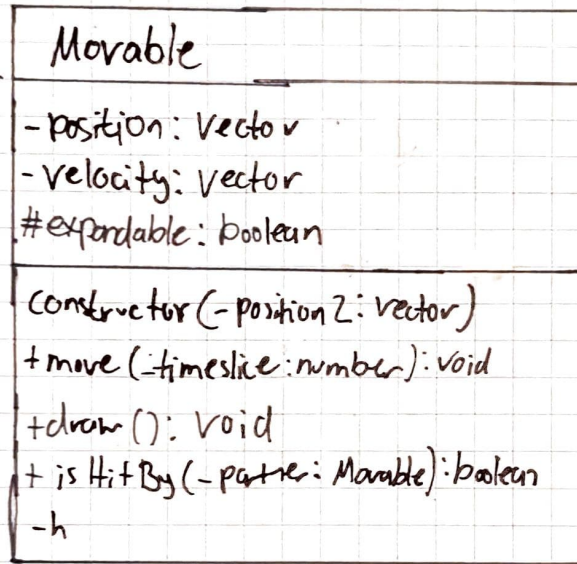 Movable
-position: Vector
-velocity: Vector
#expandable: boolean
constructor(-position2: vector)
+move(-timeslice:number): void
+draw(): void
+isHitBy(-partner: Movable):boolean
-h